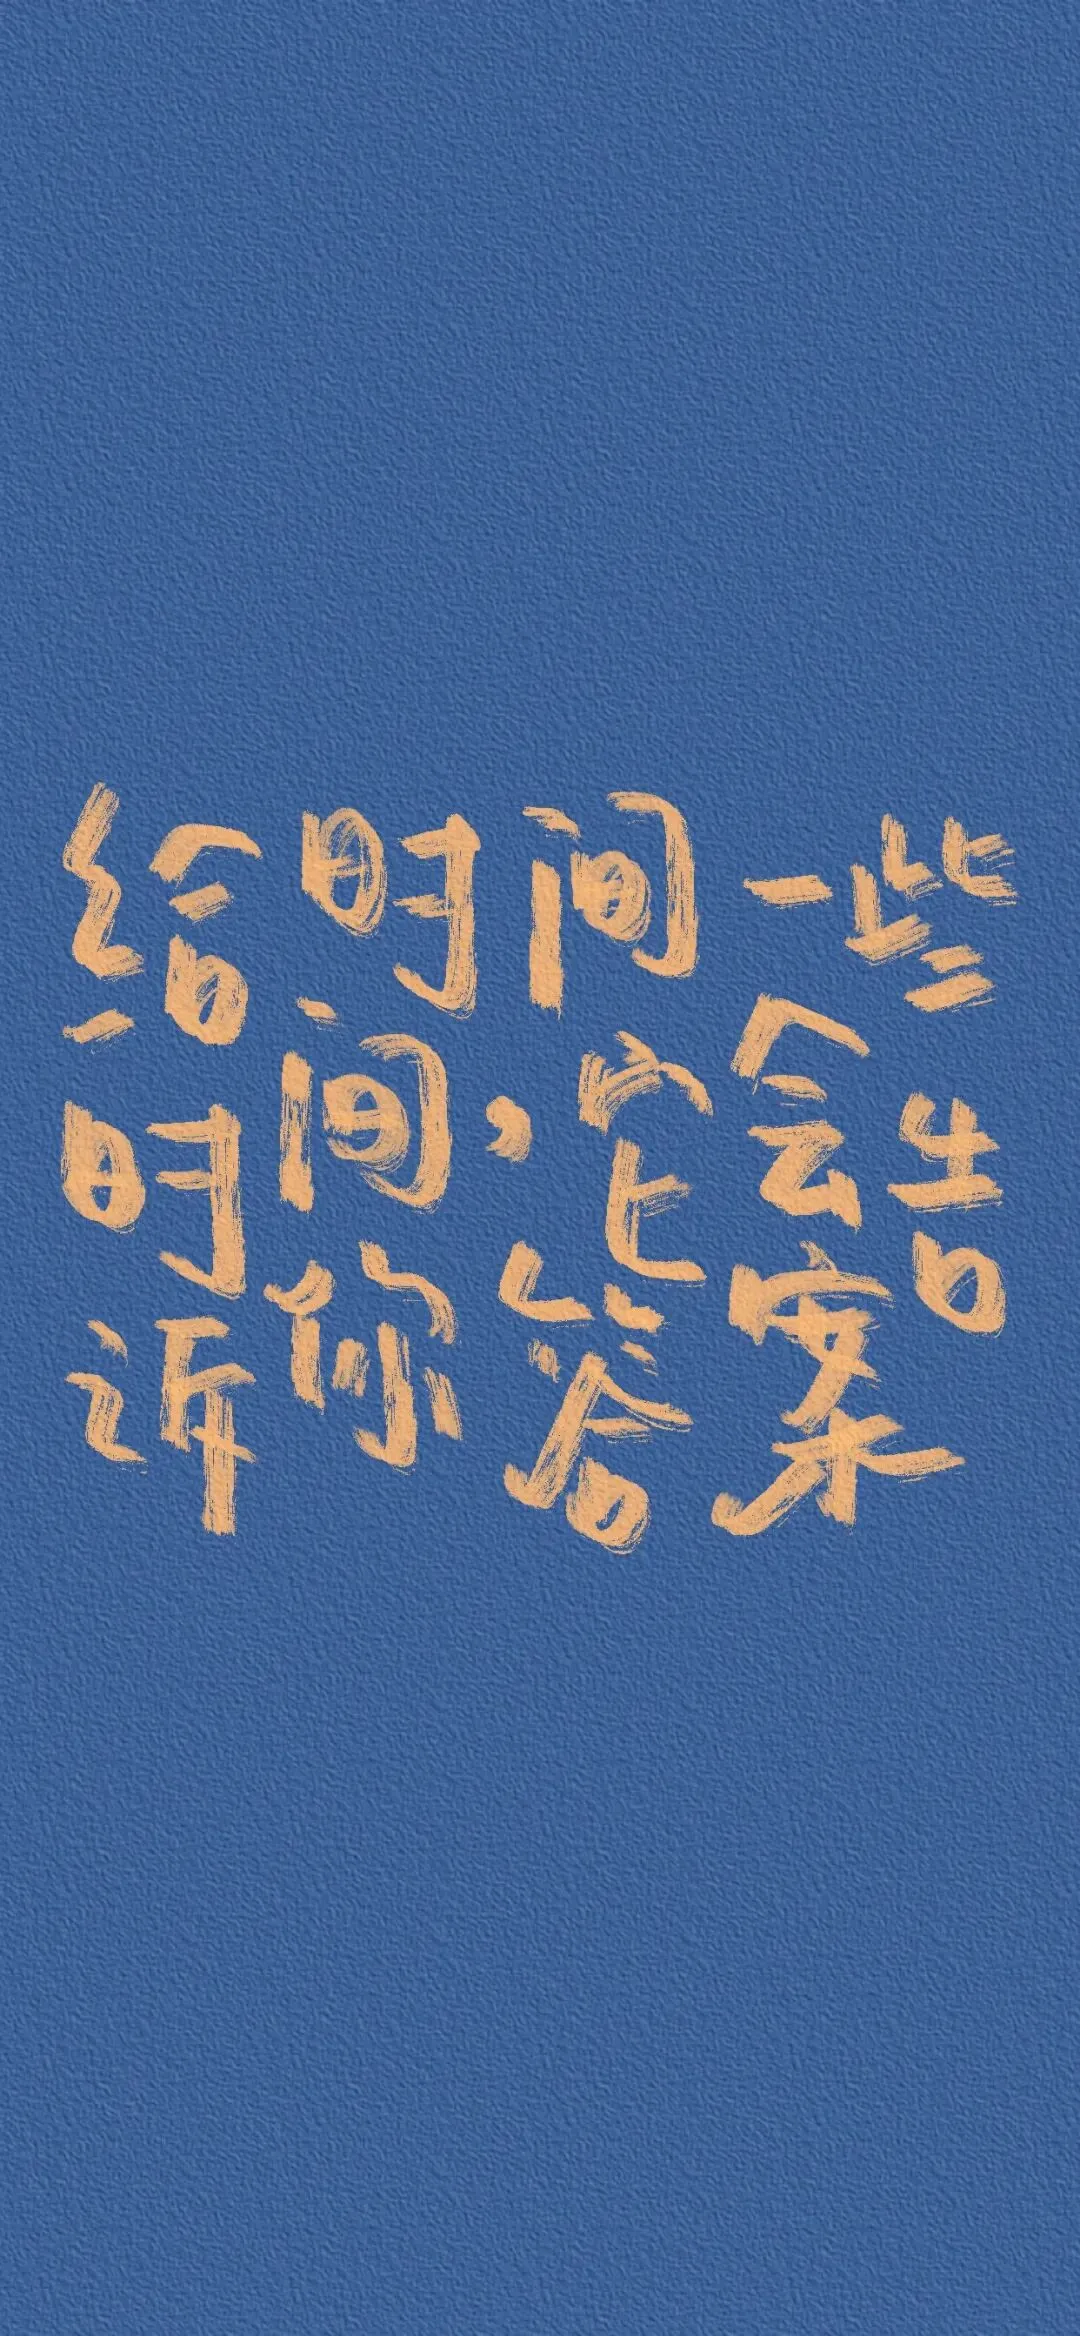 给时间一些
时间，它会告
诉你答案